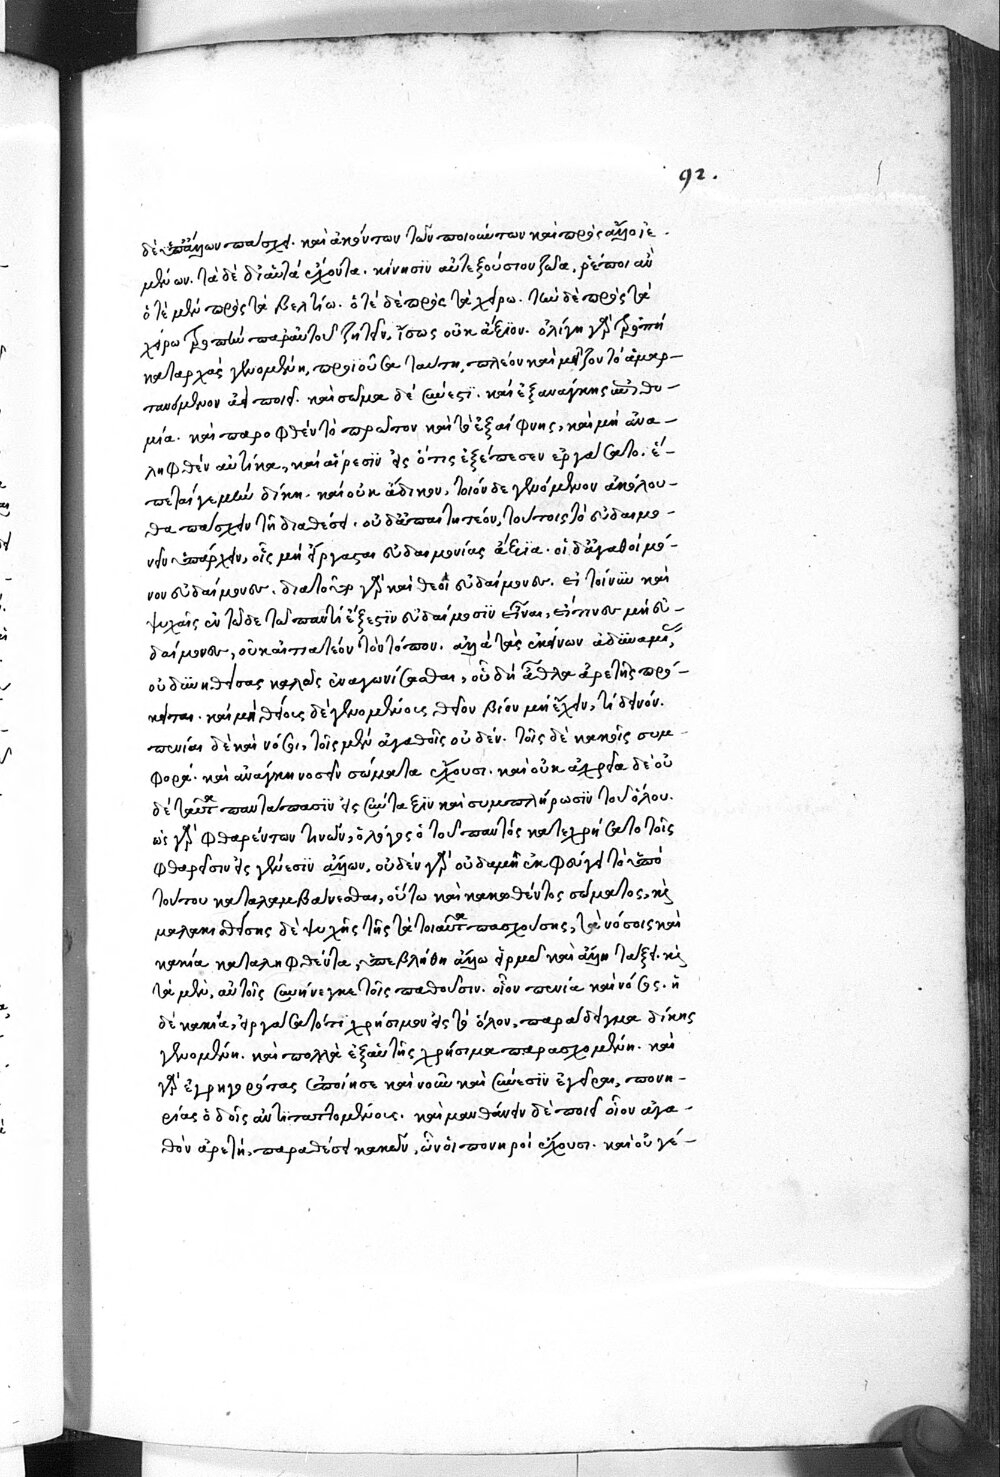 92.
δὲ ὑπ' ἄλλων πάσχει. καὶ ἀκόντων τῶν ποιούντων καὶ πρὸς ἄλλο ἱε-
μένων. τὰ δὲ δι' αὑτὰ ἔχοντα. κίνησιν αὐτεξούσιον ζῶα, ῥέποι ἂν
ὁτὲ μὲν πρὸς τὰ βελτίω. ὁτὲ δὲ πρὸς τὰ χείρω. τὴν δὲ πρὸς τὰ
χείρω τροπὴν παρ' αὐτοῦ ζητεῖν, ἴσως οὐκ ἄξιον. ὀλίγη γὰρ τροπὴ
καταρχὰς γενομένη, προϊοῦσα ταύτη, πλέον καὶ μεῖζον τὸ ἁμαρ-
τανόμενον ἀεὶ ποιεῖ. καὶ σῶμα δὲ σύνεστι. καὶ ἐξανάγκης ἐπιθυ-
μία. καὶ παροφθὲν τὸ πρῶτον καὶ τὸ ἐξαίφνης, καὶ μὴ ἀνα-
ληφθὲν αὐτίκα, καὶ αἵρεσιν εἰς ὅ τις ἐξέπεσεν εἰργάσατο. ἕ-
πεταί γε μὴν δίκη. καὶ οὐκ ἄδικον, τοιόνδε γενόμενον ἀκόλου-
θα πάσχειν τῇ διαθέσει. οὐδ' ἀπαιτητέον, τούτοις τὸ εὐδαιμο-
νεῖν ὑπάρχειν, οἷς μὴ εἴργασται εὐδαιμονίας ἄξια. οἱ δ' ἀγαθοὶ μό-
νον εὐδαίμονες. διατοῦτο γὰρ καὶ θεοὶ εὐδαίμονες. εἰ τοίνυν καὶ
ψυχαῖς ἐν τῶδε τῶ παντὶ ἔξεστιν εὐδαίμοσιν εἶναι, εἴ τινες μὴ εὐ-
δαίμονες, οὐκ αἰτιατέον τὸν τόπον. ἀλλὰ τὰς ἐκείνων ἀδυναμίας,
οὐ δυνηθείσας καλῶς ἐναγωνίσασθαι, οὗ δὴ ἆθλα ἀρετῆς πρό-
κειται. καὶ μὴ θείοις δὲ γενομένοις θεῖον βίον μὴ ἔχειν, τί δεινόν.
πενίαι δὲ καὶ νόσοι, τοῖς μὲν ἀγαθοῖς οὐδέν. τοῖς δὲ κακοῖς συμ-
φορά. καὶ ἀνάγκη νοσεῖν σώματα ἔχουσι. καὶ οὐκ ἀχρεῖα δὲ οὐ
δὲ ταῦτα παντάπασιν εἰς σύνταξιν καὶ συμπλήρωσιν τοῦ ὅλου.
ὡς γὰρ φθαρέντων τινῶν, ὁ λόγος ὁ τοῦ παντὸς κατεχρήσατο τοῖς
φθαρεῖσιν εἰς γένεσιν ἄλλων, οὐδὲν γὰρ οὐδαμῆ ἐκφεύγει τὸ ὑπὸ
τούτου καταλαμβάνεσθαι, οὕτω καὶ κακωθέντος σώματος, καὶ
μαλακισθείσης δὲ ψυχῆς τῆς τὰ τοιαῦτα πασχούσης, τὰ νόσοις καὶ
κακία καταληφθέντα, ὑπεβλήθη ἄλλω εἱρμῶ καὶ ἄλλη τάξει. καὶ
τὰ μὲν, αὐτοῖς συνήνεγκε τοῖς παθοῦσιν. οἷον πενία καὶ νόσος. ἡ
δὲ κακία, εἰργάσατό τι χρήσιμον εἰς τὸ ὅλον, παράδειγμα δίκης
γενομένη. καὶ πολλὰ ἐξ αὐτῆς χρήσιμα παρασχομένη. καὶ
γὰρ ἐγρηγορότας ἐποίησε καὶ νοῦν καὶ σύνεσιν ἐγείρει, πονη-
ρίας ὁδοῖς ἀντιταττομένοις. καὶ μανθάνειν δὲ ποιεῖ οἷον ἀγα-
θὸν ἀρετὴ, παραθέσει κακῶν, ὧν οἱ πονηροὶ ἔχουσι. καὶ οὐ γέ-